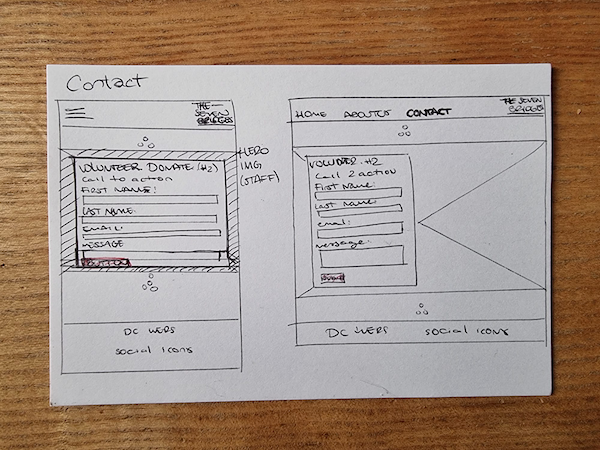 Contact
THE
SEVEN
BRIDGES
VOLUNTEER DONATE (H2)
Call to action
FIRST NAME:
LAST NAME:
EMAIL:
MESSAGE
BUTTON
HERO
IMG
(STAFF)
DC WERS
social icons
HOME ABOUT US CONTACT
THE SEVEN
BRIDGES
H2
Call 2 action
First Name:
Last Name:
email:
message:
DC WERS social icons